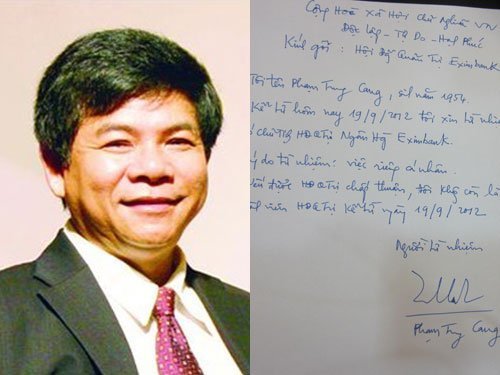 Cộng Hoà Xã Hội Chủ Nghĩa VN
Độc Lập - Tự Do - Hạnh Phúc
Kính gởi : Hội Đồng Quản Trị Eximbank
Tôi tên Phạm Trung Cang, năm 1954
Kể từ hôm nay 19/9/2012 tôi xin từ nhiệm
HĐQTrị Ngân Hg Eximbank.
Lý do từ nhiệm: việc riêng cá nhân.
được HĐQTrị chấp thuận, tôi không còn là
viên HĐQTrị kể từ ngày 19/9/2012
Người từ nhiệm
Phạm Trung Cang